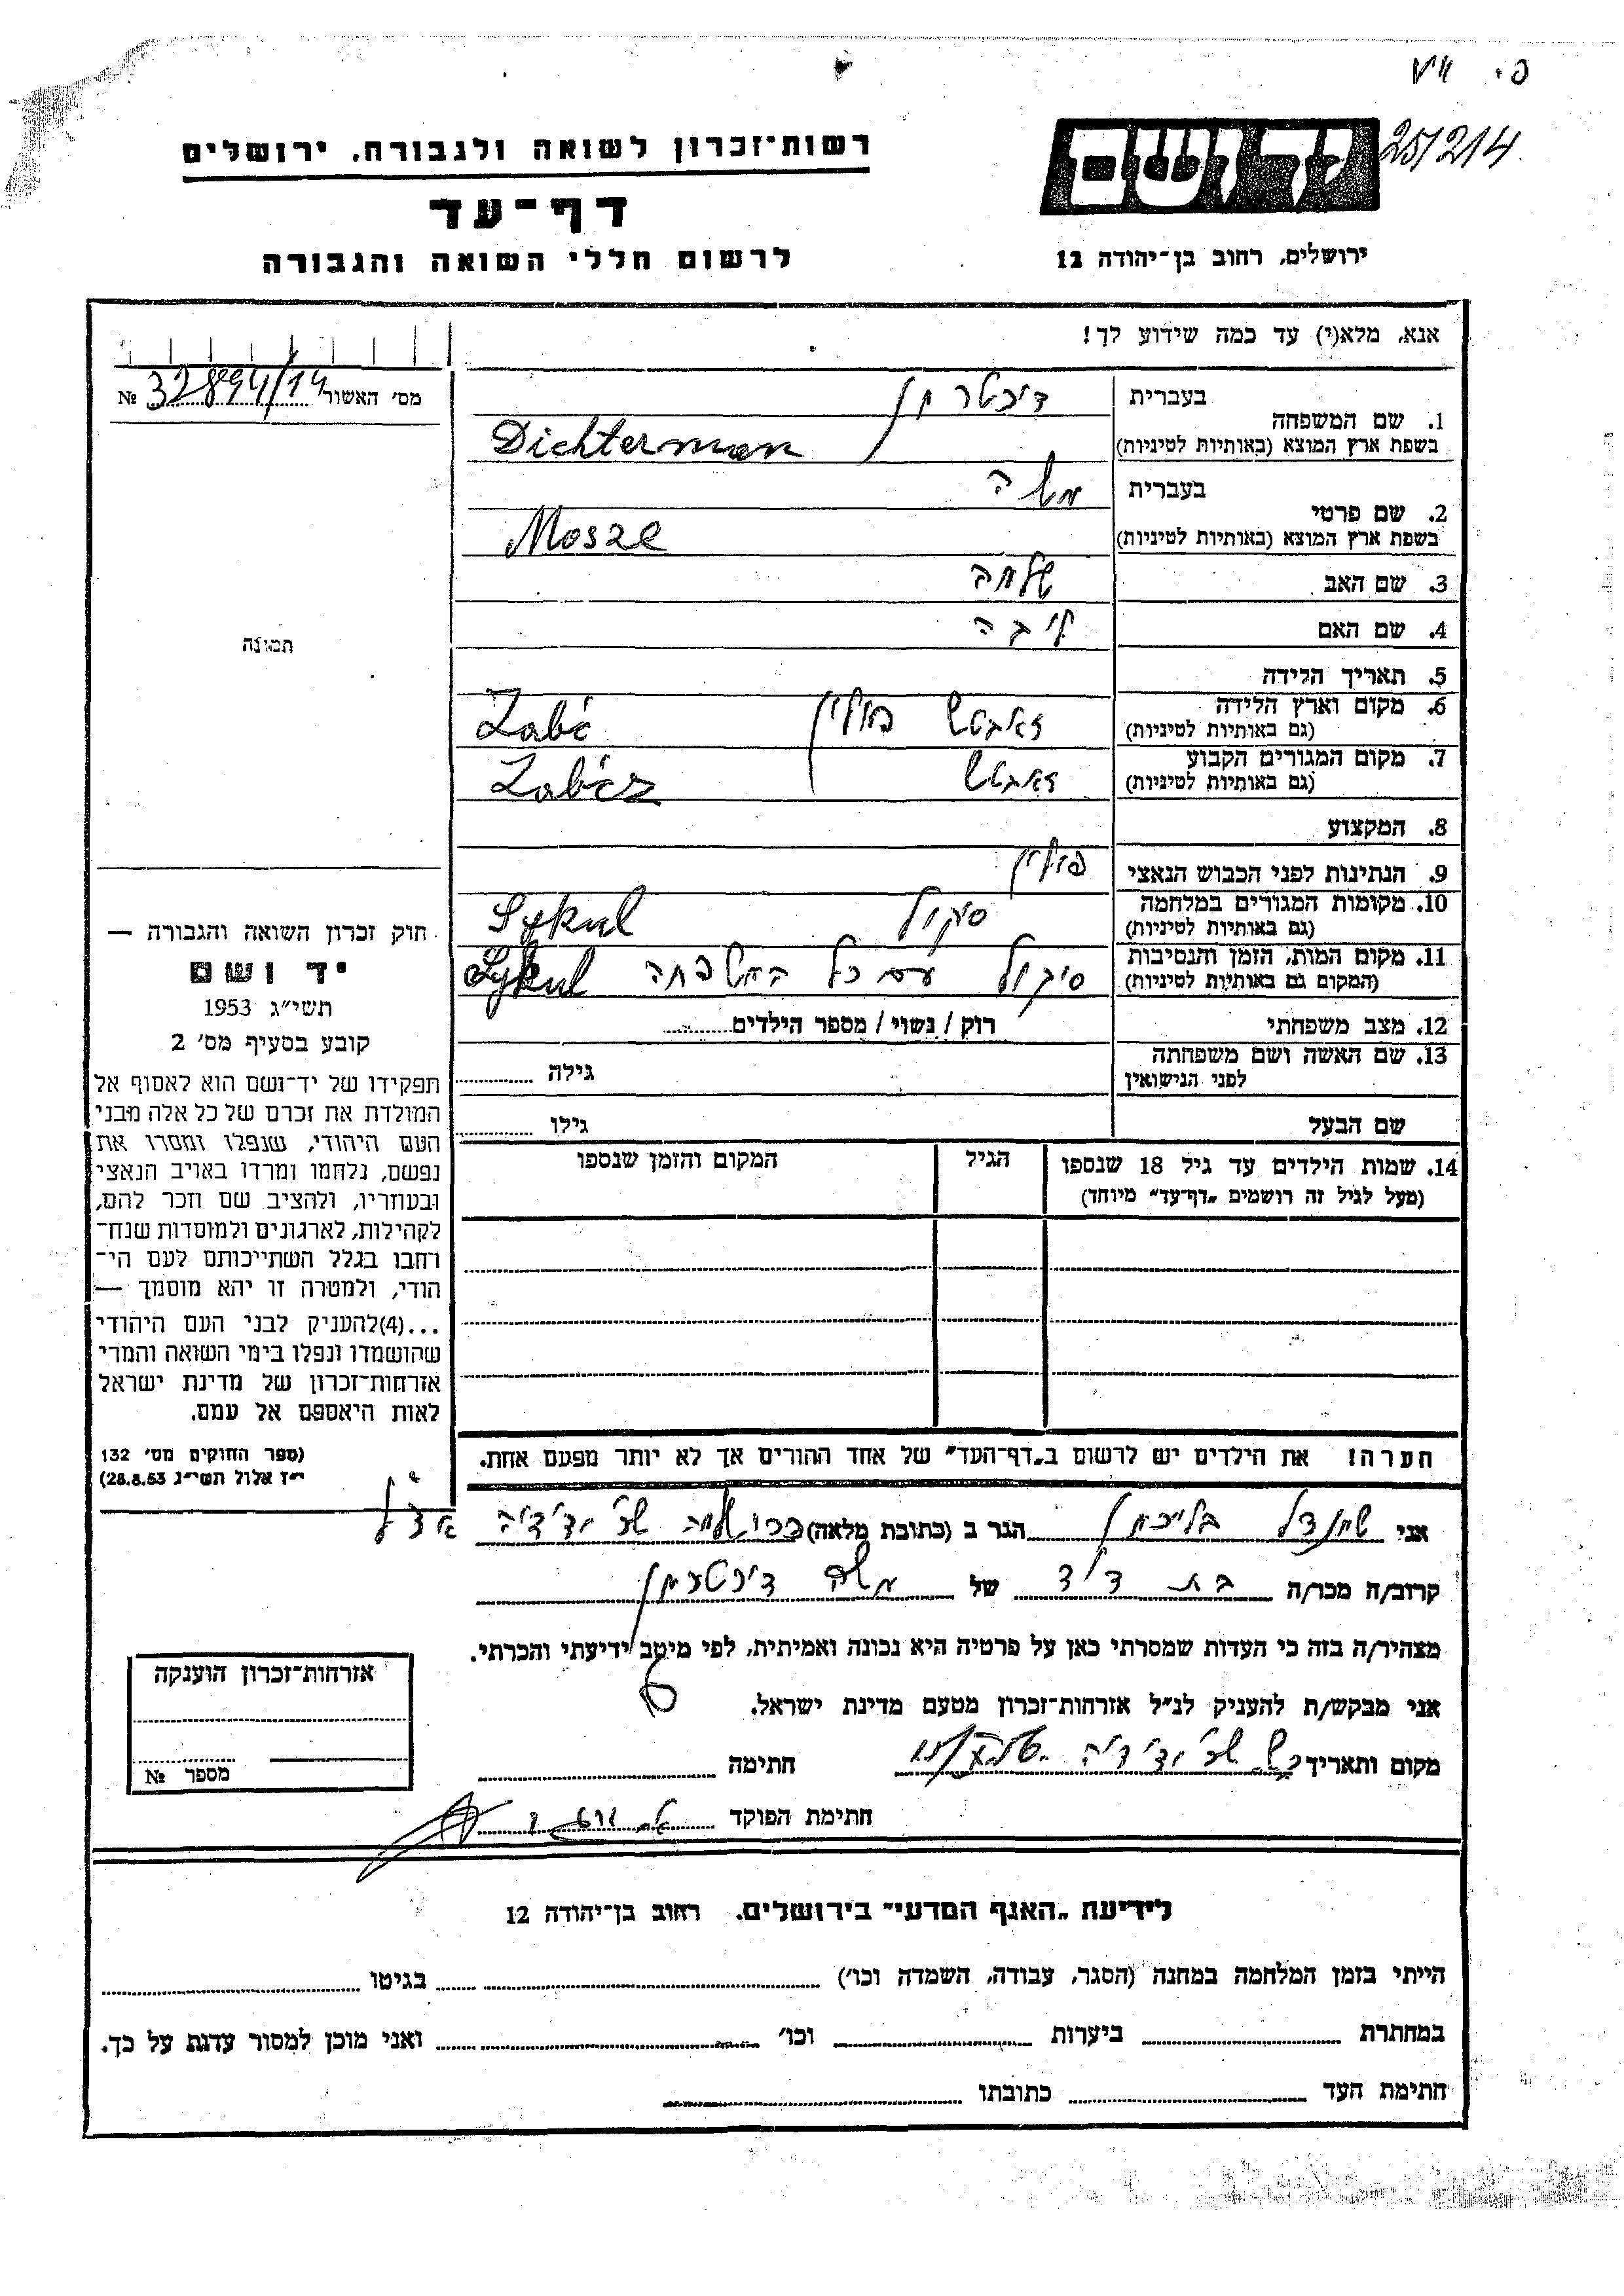 25/214
רשות־זכרון לשואה ולגבורה, ירושלים
דף־עד
לרשום חללי השואה והגבורה
ידושם
ירושלים, רחוב בן־יהודה 12
אנא, מלא(י) עד כמה שידוע לך!
מס׳ האשור 32894/14 №
תמונה
1. שם המשפחה
בעברית דיכטרמן
בשפת ארץ המוצא (באותיות לטיניות) Dichterman
2. שם פרטי
בעברית משה
בשפת ארץ המוצא (באותיות לטיניות) Mosze
3. שם האב שלמה
4. שם האם ליבה
5. תאריך הלידה
6. מקום וארץ הלידה
(גם באותיות לטיניות) זאבטש פולין
7. מקום המגורים הקבוע
(גם באותיות לטיניות) זאבטש
8. המקצוע
9. הנתינות לפני הכבוש הנאצי פולין
10. מקומות המגורים במלחמה
(גם באותיות לטיניות) סיקול Sykul
11. מקום המות, הזמן והנסיבות
(המקום גם באותיות לטיניות) סיקול עם כל המשפחה Sykul
12. מצב משפחתי רוק / נשוי / מספר הילדים
13. שם האשה ושם משפחתה
לפני הנישואין גילה
שם הבעל גילו
14. שמות הילדים עד גיל 18 שנספו
(מעל לגיל זה רושמים „דף־עד״ מיוחד)
הגיל
המקום והזמן שנספו
חוק זכרון השואה והגבורה —
יד ושם
תשי״ג 1953
קובע בסעיף מס׳ 2
תפקידו של יד־ושם הוא לאסוף אל
המולדת את זכרם של כל אלה מבני
העם היהודי, שנפלו ומסרו את
נפשם, נלחמו ומרדו באויב הנאצי
ובעוזריו, ולהציב שם וזכר להם,
לקהילות, לארגונים ולמוסדות שנח־
רבו בגלל השתייכותם לעם הי־
הודי, ולמטרה זו יהא מוסמך —
...(4)להעניק לבני העם היהודי
שהושמדו ונפלו בימי השואה והמרי
אזרחות־זכרון של מדינת ישראל
לאות היאספם אל עמם.
(ספר החוקים מס׳ 132
י״ז אלול תשי״ג 28.8.53)
הערה! את הילדים יש לרשום ב„דף־העד״ של אחד ההורים אך לא יותר מפעם אחת.
אני הגר ב (כתובת מלאה)
קרוב/ה מכר/ה בת דוד של משה דיכטרמן
מצהיר/ה בזה כי העדות שמסרתי כאן על פרטיה היא נכונה ואמיתית, לפי מיטב ידיעתי והכרתי.
אני מבקש/ת להעניק לנ״ל אזרחות־זכרון מטעם מדינת ישראל.
מקום ותאריך חתימה
חתימת הפוקד
אזרחות־זכרון הוענקה
מספר №
לידיעת „האגף המדעי״ בירושלים, רחוב בן־יהודה 12
הייתי בזמן המלחמה במחנה (הסגר, עבודה, השמדה וכו׳) בגיטו
במחתרת ביערות וכו׳ ואני מוכן למסור עדות על כך.
חתימת העד כתובתו